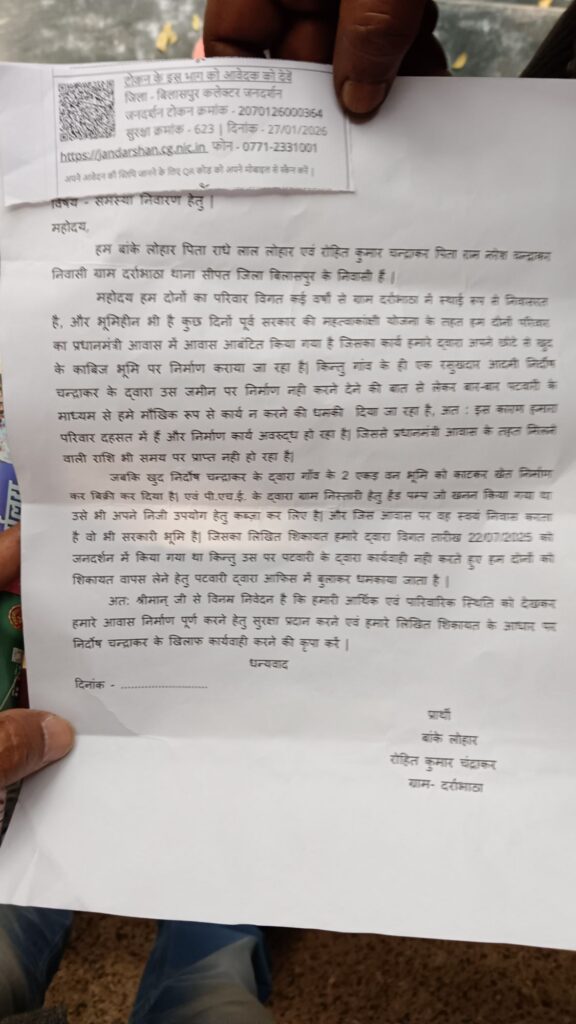 टोकन के इस भाग को आवेदक को देवें
जिला - बिलासपुर कलेक्टर जनदर्शन
जनदर्शन टोकन क्रमांक - 2070126000364
सुरक्षा क्रमांक - 623 | दिनांक - 27/01/2026
https://jandarshan.cg.nic.in फोन - 0771-2331001
अपने आवेदन की स्थिति जानने के लिए QR कोड को अपने मोबाइल से स्कैन करें |
विषय - समस्या निवारण हेतु |
महोदय,
हम बांके लोहार पिता राधे लाल लोहार एवं रोहित कुमार चन्द्राकर पिता राम नरेश चन्द्राकर
निवासी ग्राम दर्राभाठा थाना सीपत जिला बिलासपुर के निवासी हैं |
महोदय हम दोनों का परिवार विगत कई वर्षो से ग्राम दर्राभाठा में स्थाई रूप से निवासरत
है, और भूमिहीन भी है कुछ दिनों पूर्व सरकार की महत्वाकांक्षी योजना के तहत हम दोनों परिवार
का प्रधानमंत्री आवास में आवास आबंटित किया गया है जिसका कार्य हमारे द्वारा अपने छोटे से खुद
के काबिज भूमि पर निर्माण कराया जा रहा है| किन्तु गांव के ही एक रसुखदार आदमी निर्दोष
चन्द्राकर के द्वारा उस जमीन पर निर्माण नही करने देने की बात से लेकर बार-बार पटवारी के
माध्यम से हमे मौखिक रूप से कार्य न करने की धमकी दिया जा रहा है, अत : इस कारण हमारा
परिवार दहसत में हैं और निर्माण कार्य अवरुद्ध हो रहा है| जिससे प्रधानमंत्री आवास के तहत मिलने
वाली राशि भी समय पर प्राप्त नही हो रहा है|
जबकि खुद निर्दोष चन्द्राकर के द्वारा गाँव के 2 एकड़ वन भूमि को काटकर खेत निर्माण
कर बिक्री कर दिया है| एवं पी.एच.ई. के द्वारा ग्राम निस्तारी हेतु हैंड पम्प जो खनन किया गया था
उसे भी अपने निजी उपयोग हेतु कब्ज़ा कर लिए है| और जिस आवास पर वह स्वयं निवास करता
है वो भी सरकारी भूमि है| जिसका लिखित शिकायत हमारे द्वारा विगत तारीख 22/07/2025 को
जनदर्शन में किया गया था किन्तु उस पर पटवारी के द्वारा कार्यवाही नही करते हुए हम दोनों को
शिकायत वापस लेने हेतु पटवारी द्वारा आफिस में बुलाकर धमकाया जाता है |
अत: श्रीमान् जी से विनम्र निवेदन है कि हमारी आर्थिक एवं पारिवारिक स्थिति को देखकर
हमारे आवास निर्माण पूर्ण करने हेतु सुरक्षा प्रदान करने एवं हमारे लिखित शिकायत के आधार पर
निर्दोष चन्द्राकर के खिलाफ कार्यवाही करने की कृपा करें |
धन्यवाद
दिनांक - ........................
प्रार्थी
बांके लोहार
रोहित कुमार चंद्राकर
ग्राम- दर्राभाठा